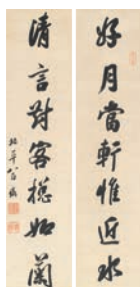 好月當軒惟近水
清言對客總如蘭